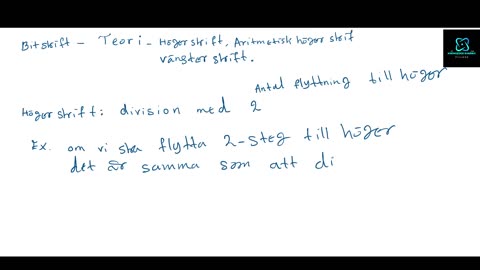 Bitskift - Teori - Högerskift, Aritmetisk höger skif
vänster skrift.
Antal flyttning till höger
Högerskrift: division med 2
Ex. om vi ska flytta 2-steg till höger
det är samma som att di